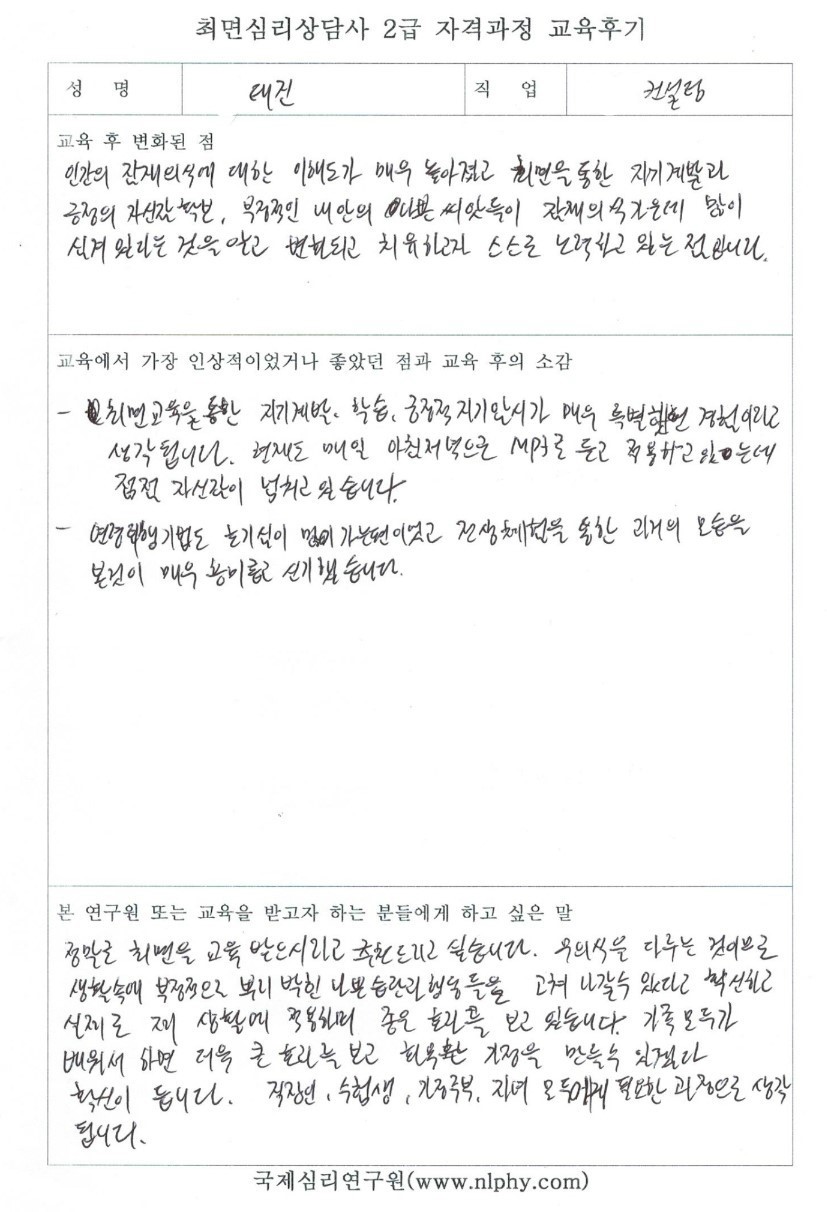 최면심리상담사 2급 자격과정 교육후기
성 명 대진 직 업 컨설팅
교육 후 변화된 점
인간의 잠재의식에 대한 이해도가 매우 높아졌고 최면을 통한 자기계발과
긍정의 자신감 확보, 부정적인 내 안의 나쁜 씨앗들이 잠재의식 가운데 많이
심겨 있다는 것을 알고 변화되고 치유하고자 스스로 노력하고 있는 점입니다.
교육에서 가장 인상적이었거나 좋았던 점과 교육 후의 소감
- 최면교육을 통한 자기계발, 학습, 긍정적 자기암시가 매우 특별했던 경험이라고
생각됩니다. 현재도 매일 아침저녁으로 MP3로 듣고 적용하고 있는데
점점 자신감이 넘치고 있습니다.
- 연령퇴행기법도 호기심이 많이 가는편이었고 전생체험을 통한 과거의 모습을
본것이 매우 흥미롭고 신기했습니다.
본 연구원 또는 교육을 받고자 하는 분들에게 하고 싶은 말
정말로 최면을 교육 받으시라고 추천드리고 싶습니다. 무의식을 다루는 것이므로
생활속에 부정적으로 뿌리 박힌 나쁜습관과 행동들을 고쳐 나갈수 있다고 확신하고
실제로 저의 생활에 적용하며 좋은 효과를 보고 있습니다. 가족모두가
배워서 하면 더욱 큰 효과를 보고 화목한 가정을 만들수 있겠다
확신이 듭니다. 직장인, 수험생, 가정주부, 자녀 모두에게 필요한 과정으로 생각
됩니다.
국제심리연구원(www.nlphy.com)